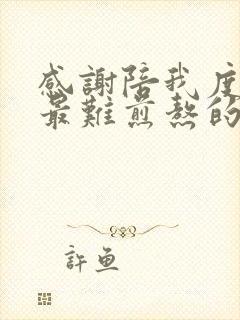 感謝陪我度
最難煎熬的
許魚